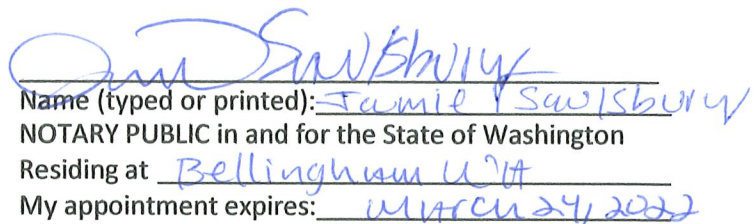 Saulsbury
Name (typed or printed): Jamie Saulsbury
NOTARY PUBLIC in and for the State of Washington
Residing at Bellingham WA
My appointment expires: March 24, 2022